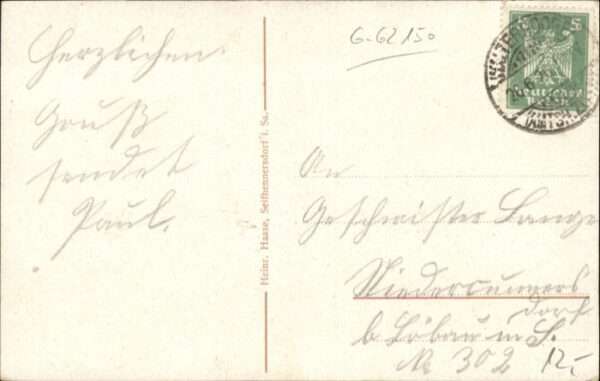 Herzlichen
Gruß
sendet
Paul.
Heinr. Haase, Seifhennersdorf i. Sa.
G-62150
5
Deutsches
Reich
An
Geschwister Lange
Niedercunners
dorf
b. Löbau in S.
No 302
12,-